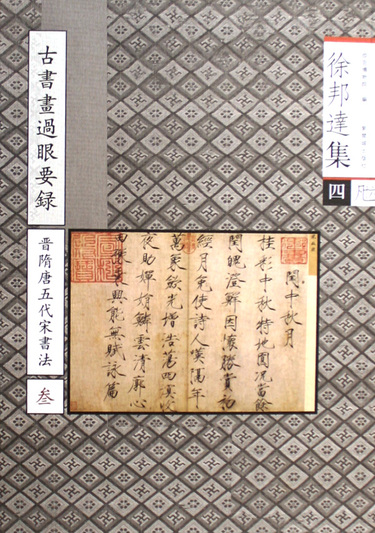 徐邦達集
四
古書畫過眼要録
晋隋唐五代宋書法
叁
閏中秋月
桂彩中秋特地圓況當餘
閏魄澄鮮因懷勝賞初
經月免使詩人嘆隔年
萬象斂光增浩蕩四溟收
夜助嬋娟鱗雲清廓心
田豁乘興能無賦詠篇